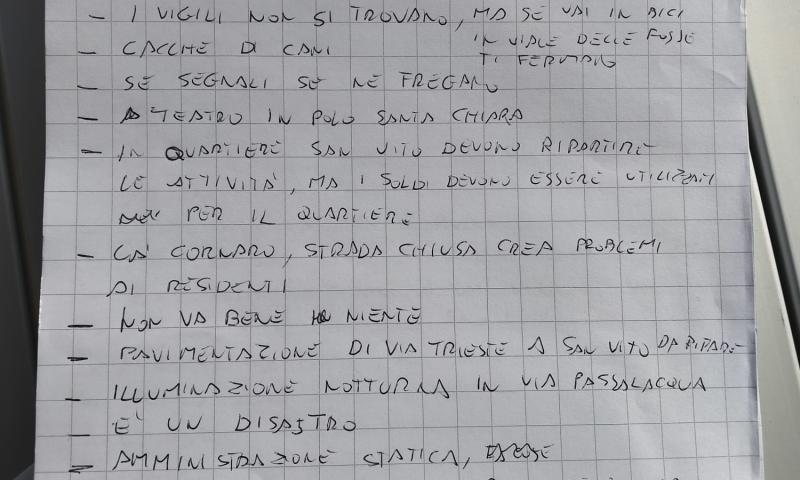 - I VIGILI NON SI TROVANO, MA SE VAI IN BICI
IN VIALE DELLE FOSSE
TI FERMANO
- CACCHE DI CANI
- SE SEGNALI SE NE FREGANO
- TEATRO IN POLO SANTA CHIARA
- IN QUARTIERE SAN VITO DEVONO RIPARTIRE
LE ATTIVITÀ, MA I SOLDI DEVONO ESSERE UTILIZZATI
PER IL QUARTIERE
- CÀ CORNARO, STRADA CHIUSA CREA PROBLEMI
AI RESIDENTI
- NON VA BENE NIENTE
- PAVIMENTAZIONE DI VIA TRIESTE A SAN VITO DA RIFARE
- ILLUMINAZIONE NOTTURNA IN VIA PASSALACQUA
- E' UN DISASTRO
- AMMINISTRAZIONE STATICA,